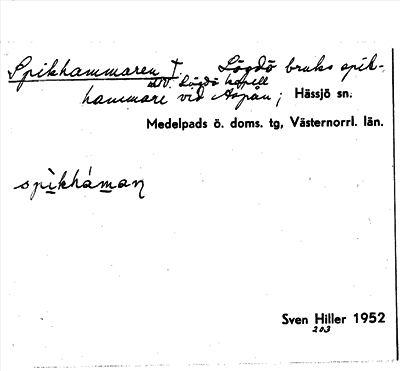 Spikhammaren †. Lögdö bruks spik-
NV. Lögdö kapell
hammare vid Aspån; Hässjö sn.
Medelpads ö. doms. tg, Västernorrl. län.
spìkháman
Sven Hiller 1952
203